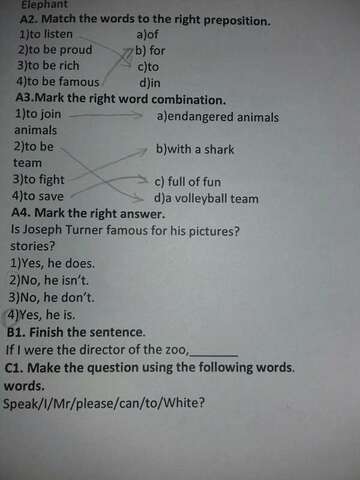 Elephant
A2. Match the words to the right preposition.
1)to listen a)of
2)to be proud b) for
3)to be rich c)to
4)to be famous d)in
A3.Mark the right word combination.
1)to join a)endangered animals
animals
2)to be b)with a shark
team
3)to fight c) full of fun
4)to save d)a volleyball team
A4. Mark the right answer.
Is Joseph Turner famous for his pictures?
stories?
1)Yes, he does.
2)No, he isn't.
3)No, he don't.
4)Yes, he is.
B1. Finish the sentence.
If I were the director of the zoo,_______
C1. Make the question using the following words.
words.
Speak/I/Mr/please/can/to/White?